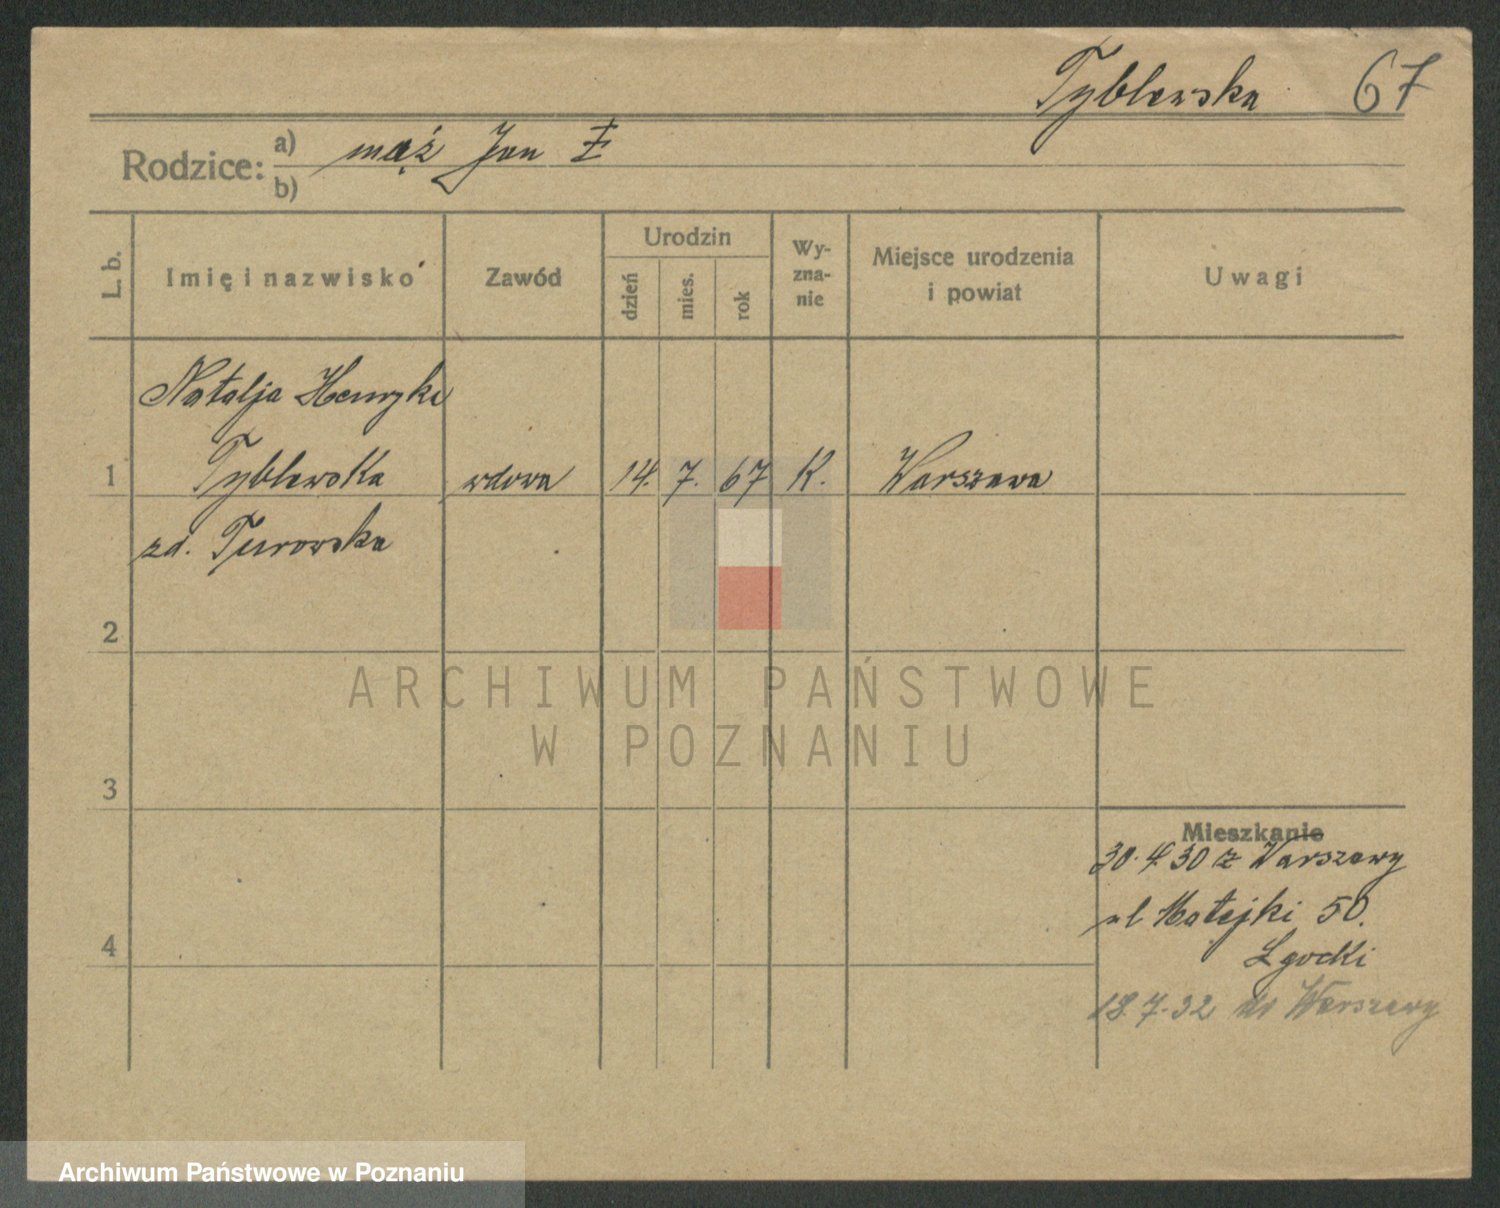 Tyblewska 67
Rodzice: a) mąż Jan
b)
L. b.
Imię i nazwisko
Zawód
Urodzin
dzień
mies.
rok
Wy-
zna-
nie
Miejsce urodzenia
i powiat
Uwagi
Natalja Henryka
1 Tyblewska wdowa 14. 7. 67 K. Warszawa
zd. Turowska
2
ARCHIWUM PAŃSTWOWE
W POZNANIU
3
Mieszkanie
30.4.30 z Warszawy
ul Matejki 50.
Lgocki
4
18.7.32 do Warszawy
Archiwum Państwowe w Poznaniu